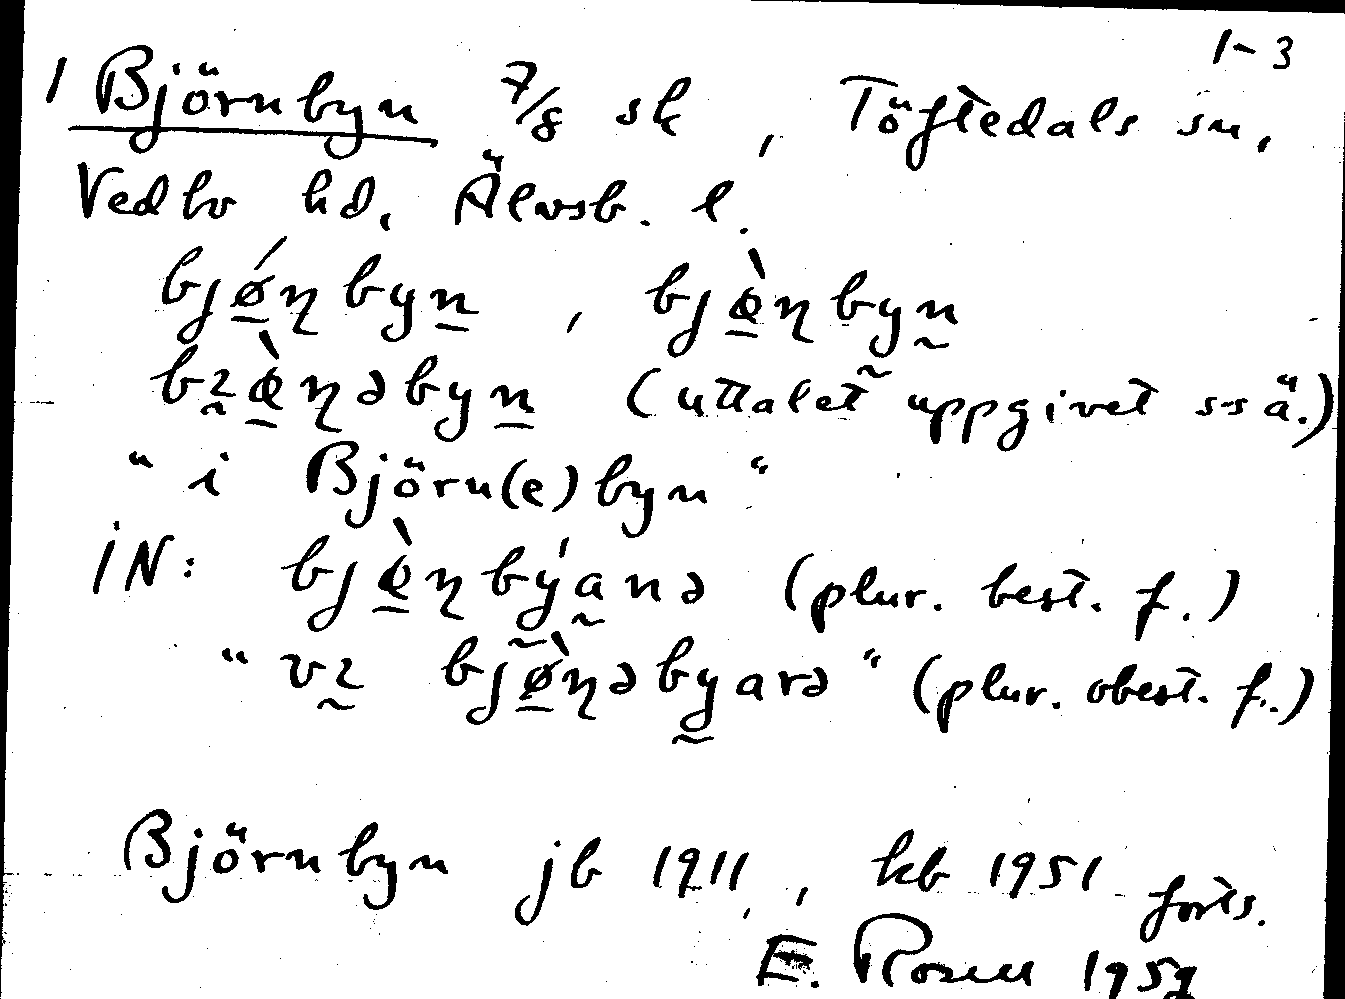 1-3
1 Björnbyn 7/8 sk, Töftedals sn,
Vedbo hd, Älvsb. l.
bjǿ̱ɳbyṉ, bjɵ̱̀ɳbyn̰
bɿ̰ɵ̱̀ɳəbyṉ (uttalet uppgivet s-s ä.)
"i Björn(e)byn"
IN: bjɵ̱̀ɳbý̰a̰nə (plur. best. f.)
"vɿ̰ bjø̱̀ɳəby̰arə" (plur. obest. f.)
Björnbyn jb 1911, kb 1951 forts.
E. Rosell 1959